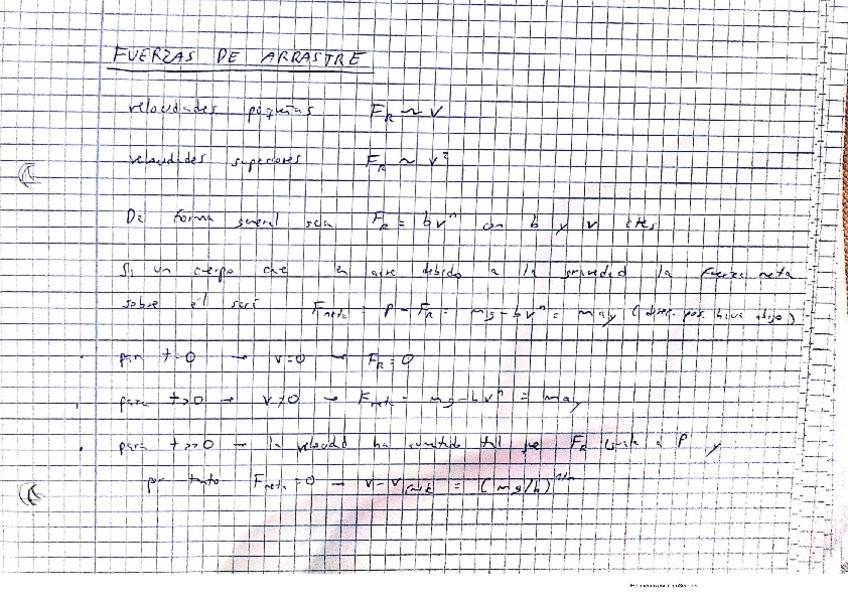 FUERZAS DE ARRASTRE
velocidades pequeñas F_R ~ v
velocidades superiores F_R ~ v²
De forma general sea F_R = bvⁿ con b y v ctes
Si un cuerpo cae en aire debido a la gravedad la fuerza neta
sobre él será F_neta = P - F_R = mg - bvⁿ = ma_y (direc. pos. hacia abajo)
. para t=0 → v=0 → F_R = 0
. para t>0 → v≠0 → F_neta = mg - bvⁿ = ma_y
. para t>>0 → la velocidad ha aumentado tal que F_R iguala a P y
por tanto F_neta = 0 → v = = (mg/b)^1/n